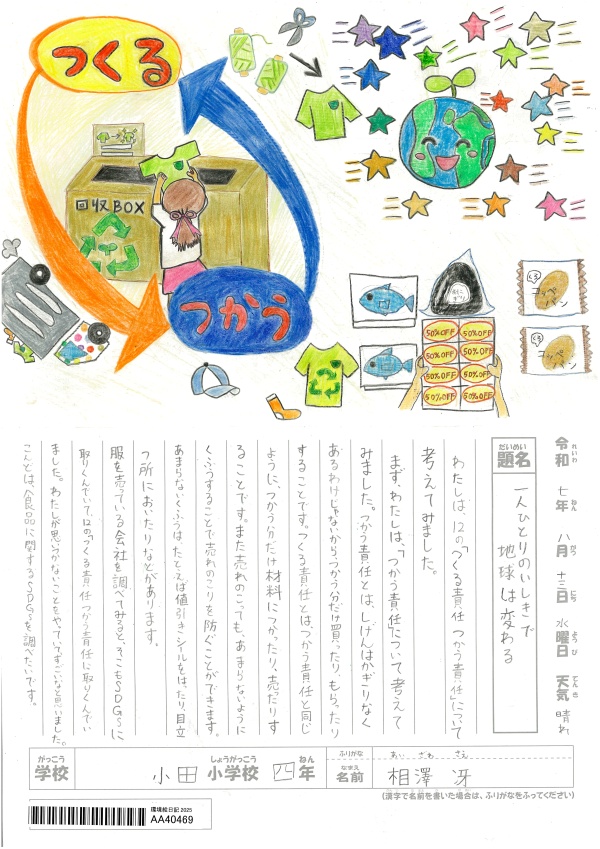 つくる
回収BOX
つかう
くろ
コッペパン
くろ
コッペパン
50%OFF
50%OFF
50%OFF
50%OFF
50%OFF
50%OFF
50%OFF
50%OFF
令和 七年 八月 十三日 水曜日 天気 晴れ
れいわ ねん がつ にち ようび てんき
だいめい
題名
一人ひとりのいしきで
地球は変わる
わたしは、12の「つくる責任 つかう責任」について
考えてみました。
まず、わたしは、「つかう責任」について考えて
みました。つかう責任とは、しげんはかぎりなく
あるわけじゃないからつかう分だけ買ったり、もらったり
することです。つくる責任とは、つかう責任と同じ
ように、つかう分だけ材料につかったり、売たりす
ることです。また売れのこっても、あまらないように
くふうすることで売れのこりを防ぐことができます。
あまらないくふうは、たとえば値引きシールをはったり、目立
つ所においたりなどがあります。
服を売ている会社を調べてみると、そこもSDGsに
取りくんでいて、12の「つくる責任 つかう責任に取りくんでい
ました。わたしが思いつかないことをやていて、すごいなと思いました。
こんどは、食品に関するSDGsを調べたいです。
がっこう
学校
小田
しょうがっこう
小学校
四
ねん
年
ふりがな
あい ざわ さえ
なまえ
名前
相澤 冴
(漢字で名前を書いた場合は、ふりがなをふってください)
環境絵日記 2025
AA40469